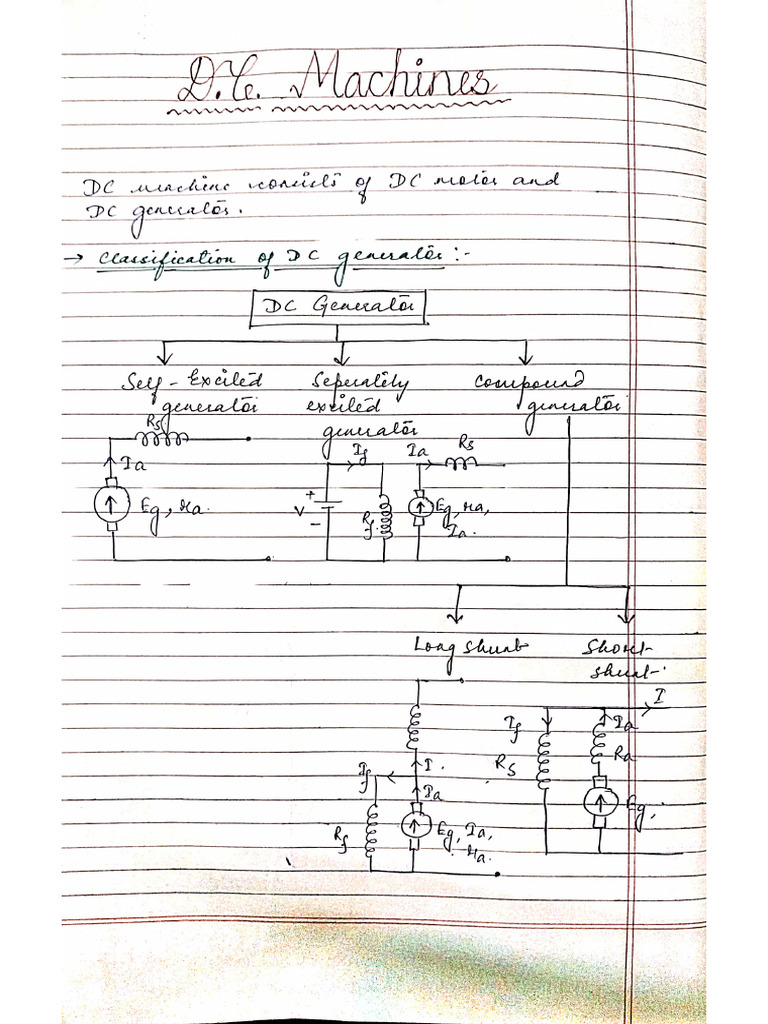 D.C. Machines
DC machine consists of DC motor and
DC generator.
→ Classification of DC generator :-
DC Generator
Self-Excited
generator
Seperately
excited
generator
Compound
generator
Rs
Ia
Eg, Ra.
If
V
+
-
Rf
Ia
Rs
Eg, Ra,
Ia.
Long Shunt
Short-
shunt.
I.
If
Ia
Rf
Eg, Ia,
Ra.
I
If
Ia
Rs
Ra
Eg,